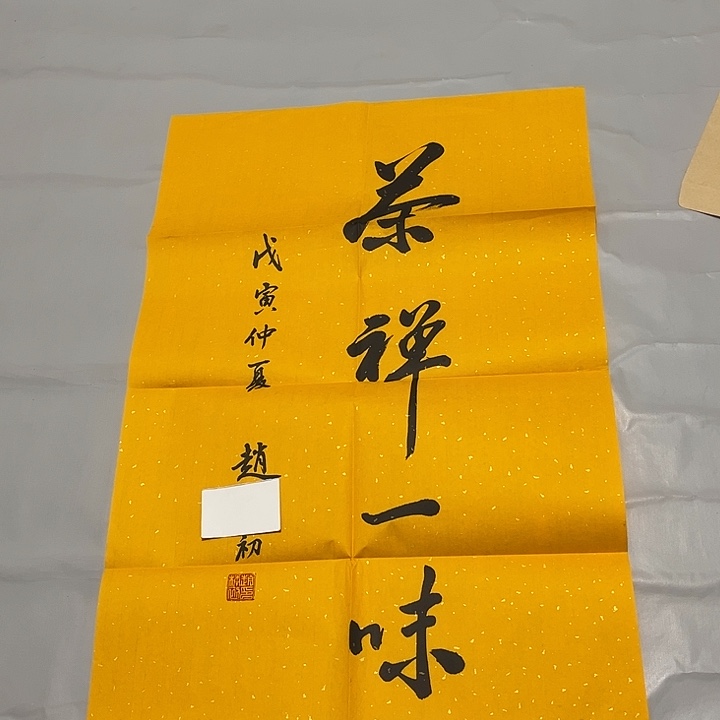 茶禅一味
戊寅仲夏
趙 初